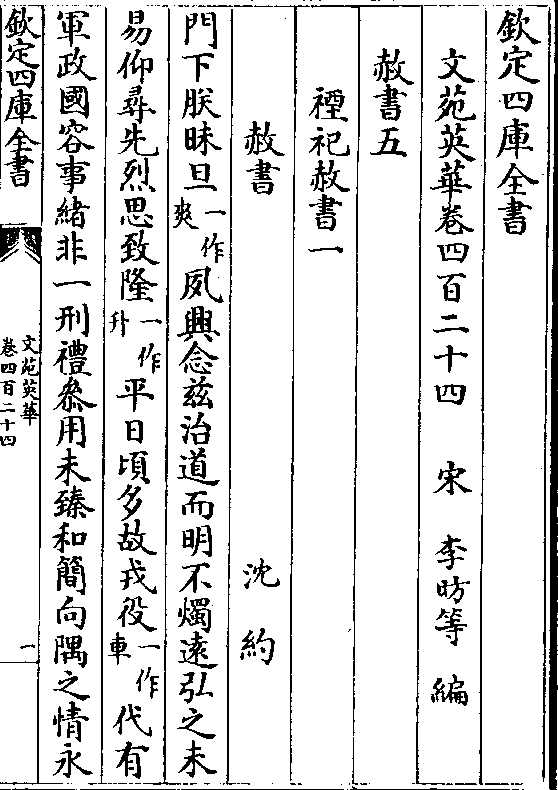 欽定四庫全書
文苑英華卷四百二十四　宋　李昉等　編
赦書五
禋祀赦書一
赦書　沈約
門下朕昧旦一作爽夙興念兹治道而明不燭遠弘之未
易仰尋先烈思致隆一作升平日頃多故戎役一作車代有
軍政國容事緒非一刑禮叅用未臻和簡向隅之情永
欽定四庫全書
文苑英華
卷四百二十四
一